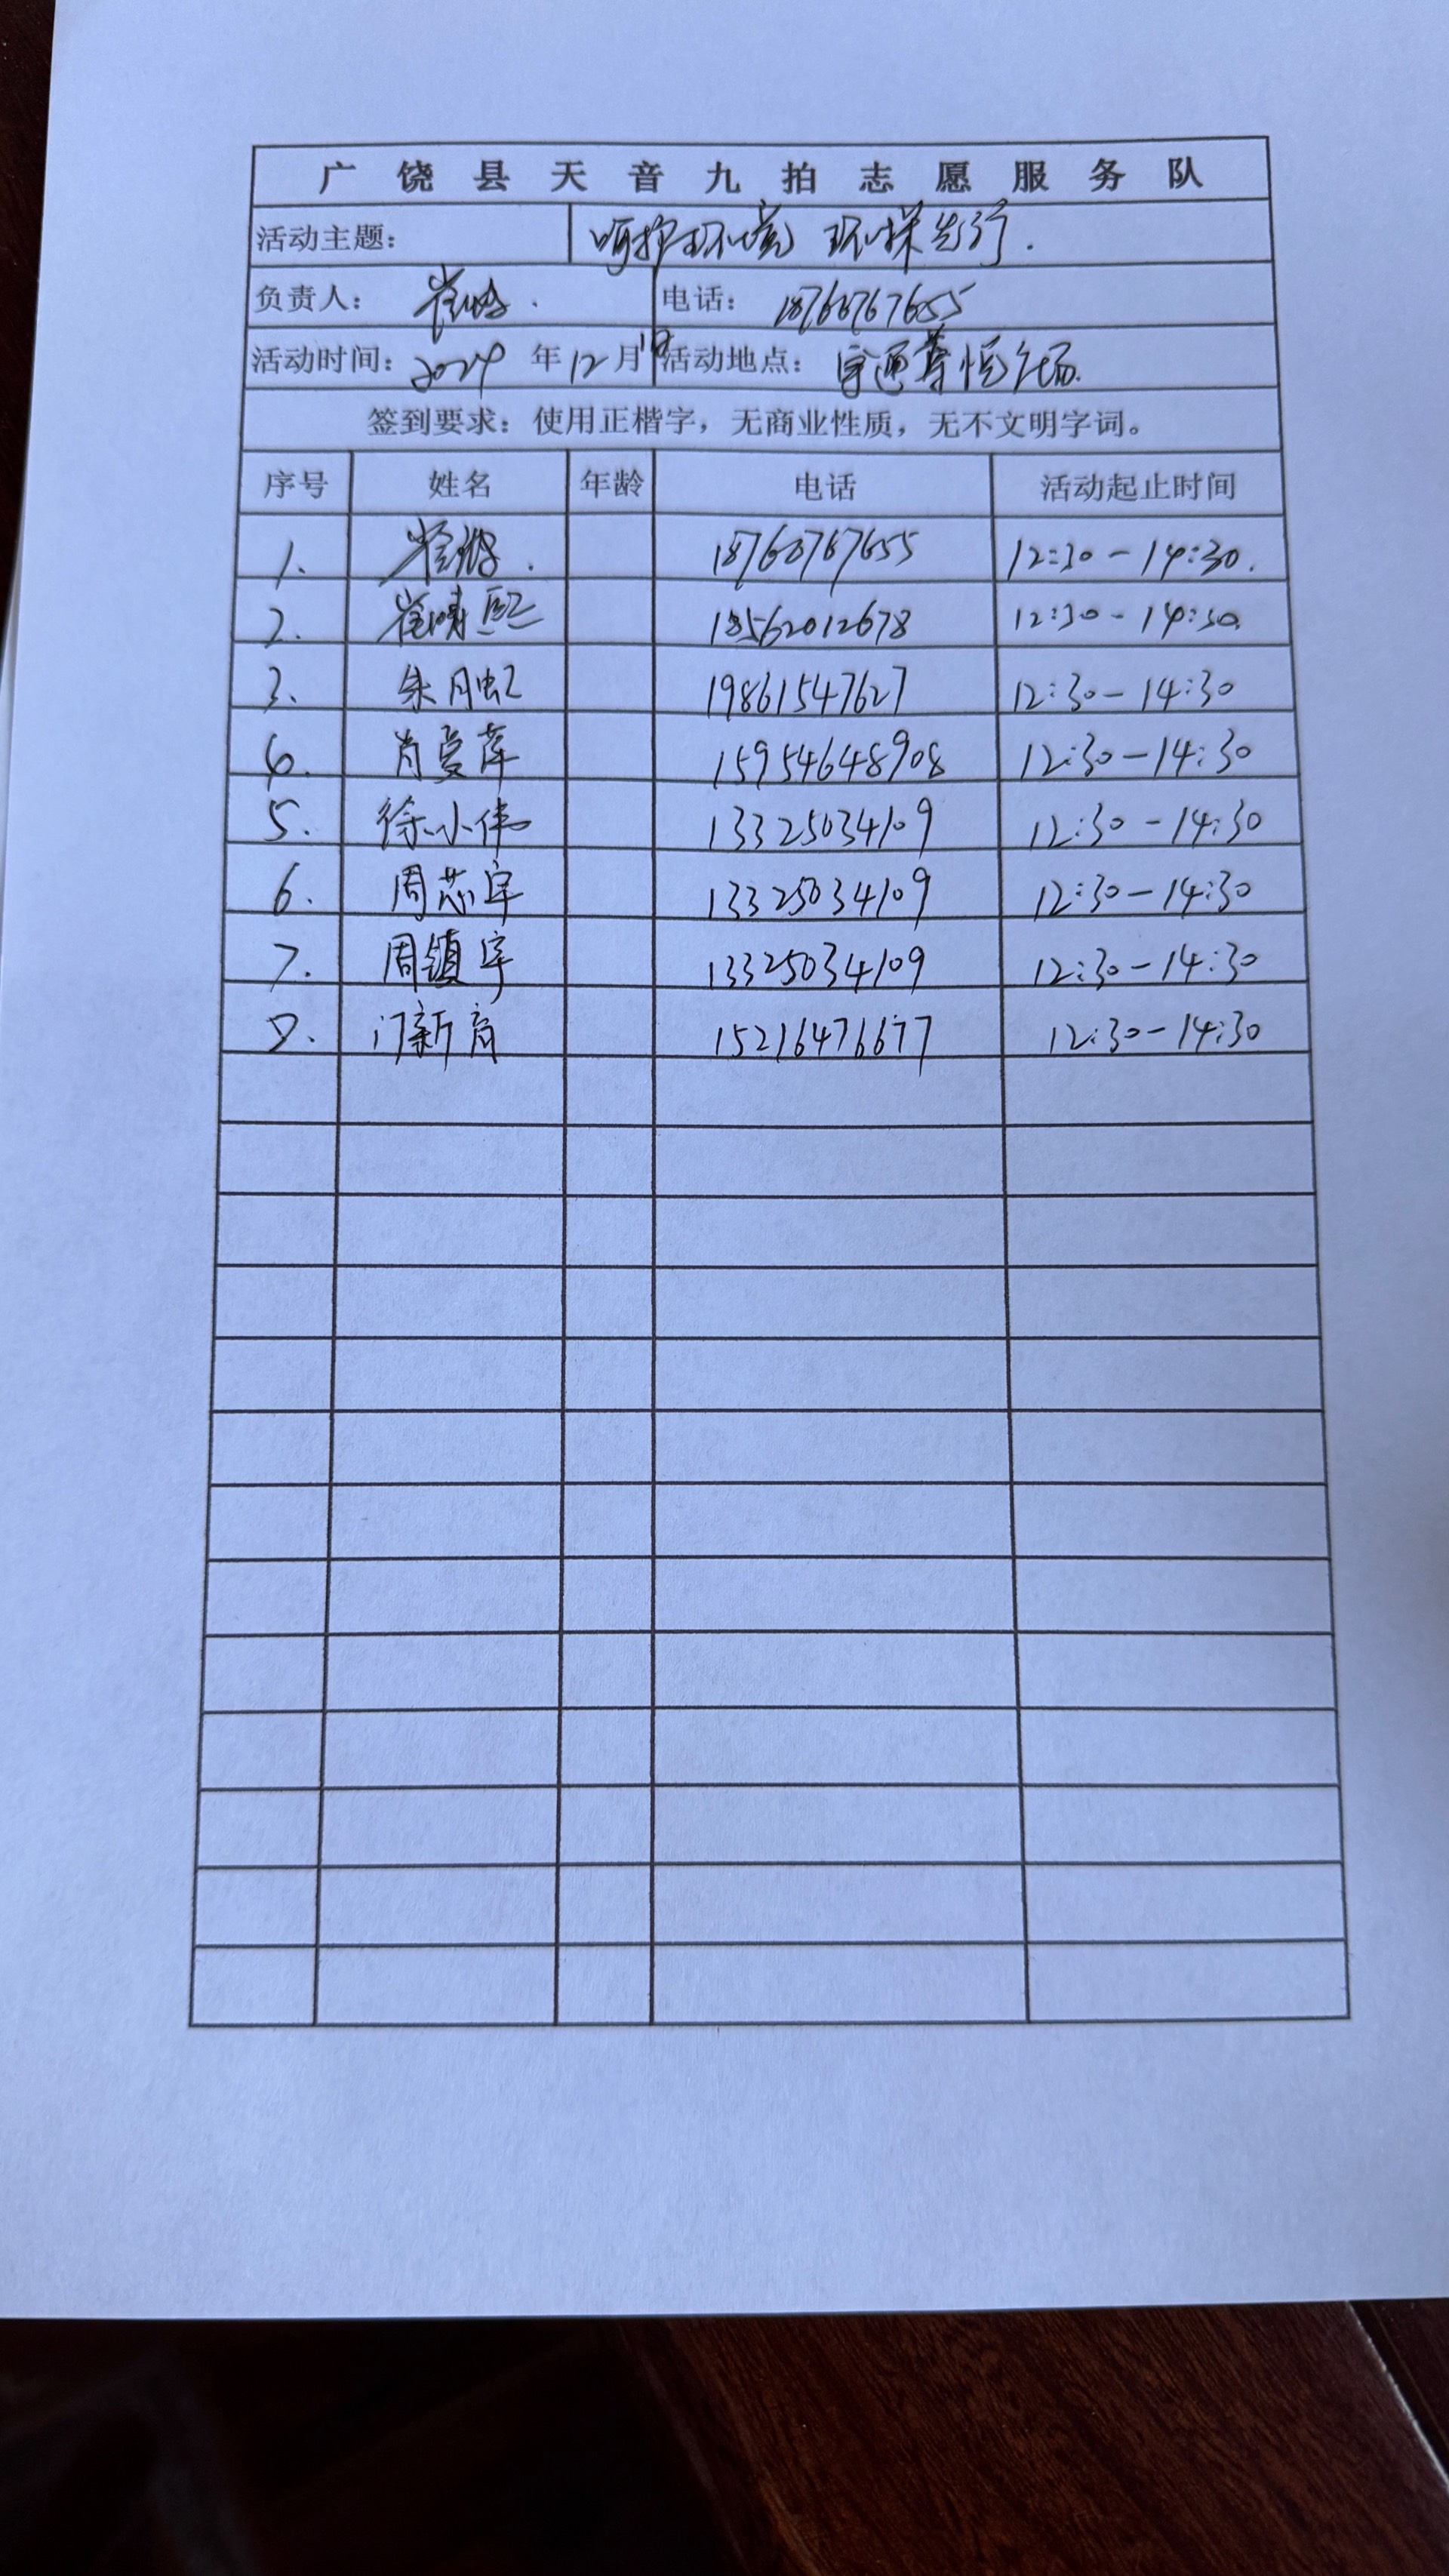 广饶县天音九拍志愿服务队
活动主题： 呵护环境 环保先行.
负责人： 崔 电话： 18760767655
活动时间：2024年12月1日 活动地点： 广场.
签到要求：使用正楷字，无商业性质，无不文明字词。
序号 姓名 年龄 电话 活动起止时间
1. 崔 18760767655 12:30-14:30.
2. 崔晴熙 18562012678 12:30-14:30.
3. 朱月虹 19861547627 12:30-14:30
4. 肖爱萍 15954648908 12:30-14:30
5. 徐小伟 13325034109 12:30-14:30
6. 周芯宇 13325034109 12:30-14:30
7. 周镇宇 13325034109 12:30-14:30
8. 门新育 15216476677 12:30-14:30